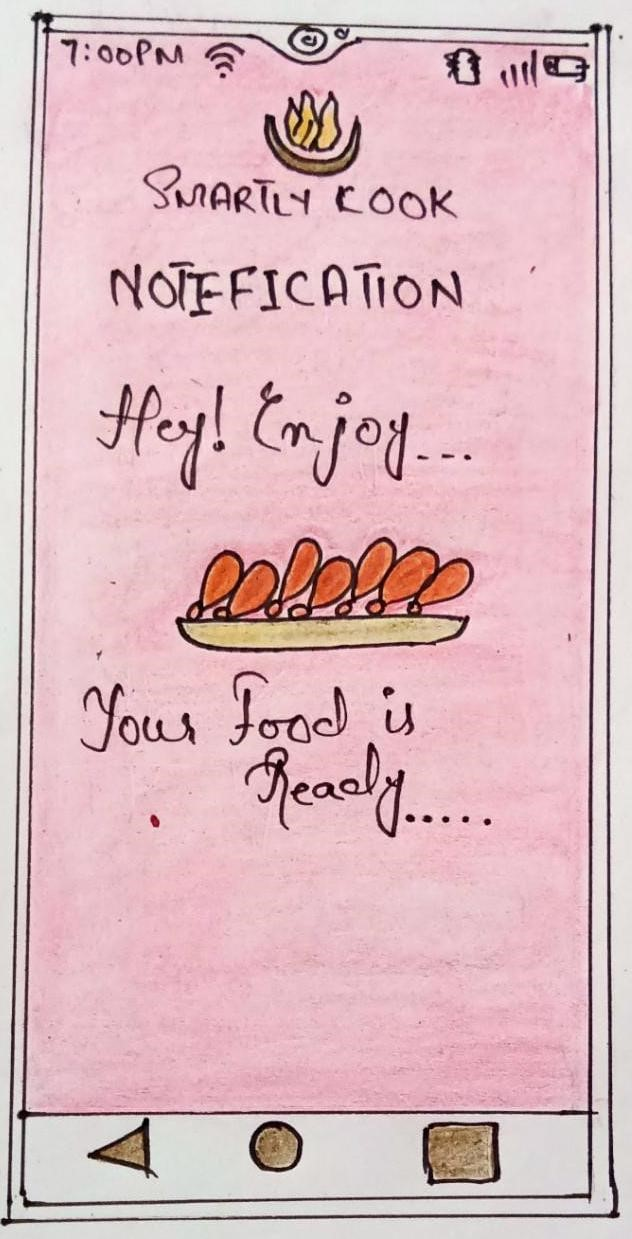 7:00PM
SMARTLY COOK
NOTIFICATION
Hey! Enjoy...
Your Food is
Ready.....